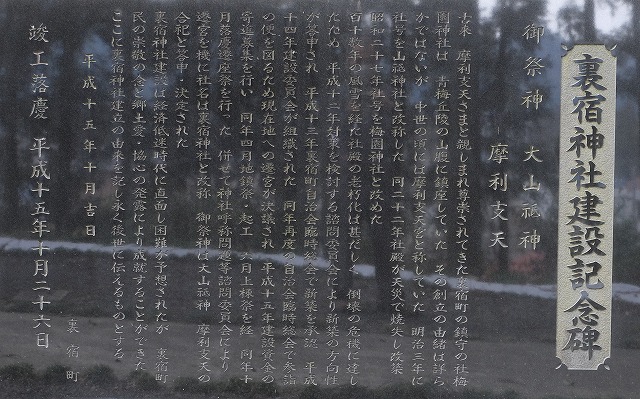 裏宿神社建設記念碑
御祭神 大山祗神
摩利支天
古来 摩利支天さまと親しまれ尊崇されてきた裏宿町の鎮守の社梅
園神社は 青梅丘陵の山麓に鎮座していた その創立の由緒は詳ら
かではないが 中世の頃には摩利支天宮と称していた 明治三年に
社号を山祗神社と改称した 同二十二年社殿が天災で焼失し改築
昭和二十七年社号を梅園神社と改めた
百十数年の風雪を経た社殿の老朽化は甚だしく 倒壊の危機に達し
たため 平成十二年対策を検討する諮問委員会により新築の方向性
が答申され 平成十三年裏宿町自治会臨時総会で新築を承認 平成
十四年建設委員会が組織された 同年再度の自治会臨時総会で参詣
の便を図るため現在地への遷宮が決議され 平成十五年建設資金の
寄進募集を行い 同年四月地鎮祭・起工 六月上棟祭を経 同年十
月落慶遷座祭を行った 併せて神社呼称問題等諮問委員会により
遷宮を機に社名は裏宿神社と改称 御祭神は大山祗神 摩利支天の
合祀と答申し 決定された
裏宿神社建設は経済低迷時代に直面し困難が予想されたが 裏宿町
民の崇敬の念と郷土愛・協心の発露により成就することができた
ここに裏宿神社建立の由来を記し永く後世に伝えるものとする
平成十五年十月吉日
裏宿町
竣工落慶 平成十五年十月二十六日